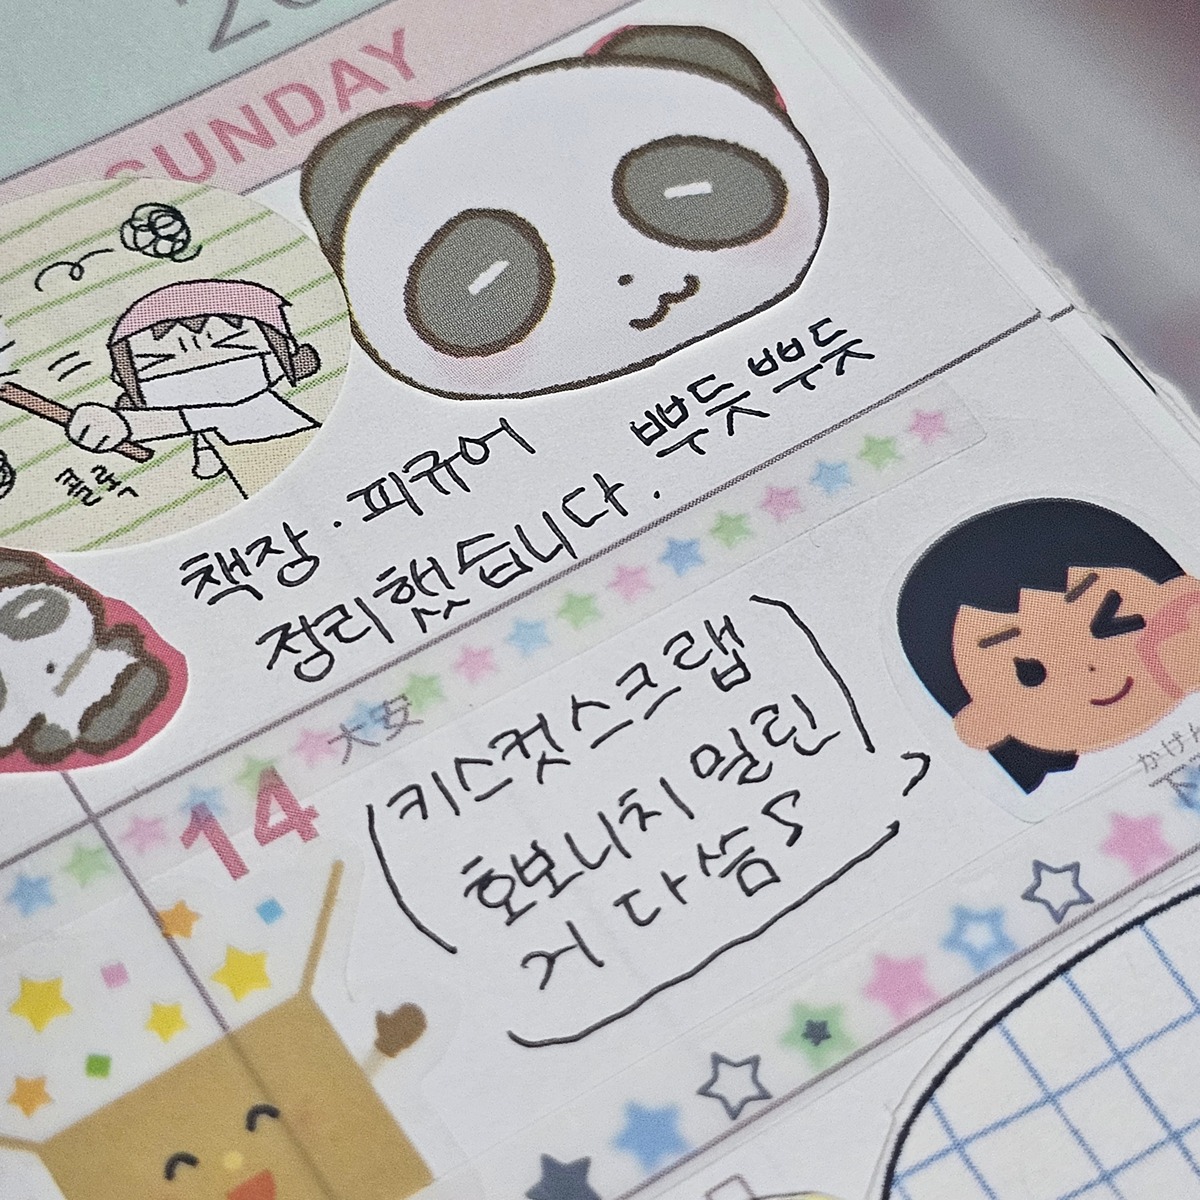 SUNDAY
콜록
책장·피규어
정리했습니다. 뿌듯뿌듯
大安
14
(키스컷스크랩
호보니치 밀린
거 다 씀)
かげん